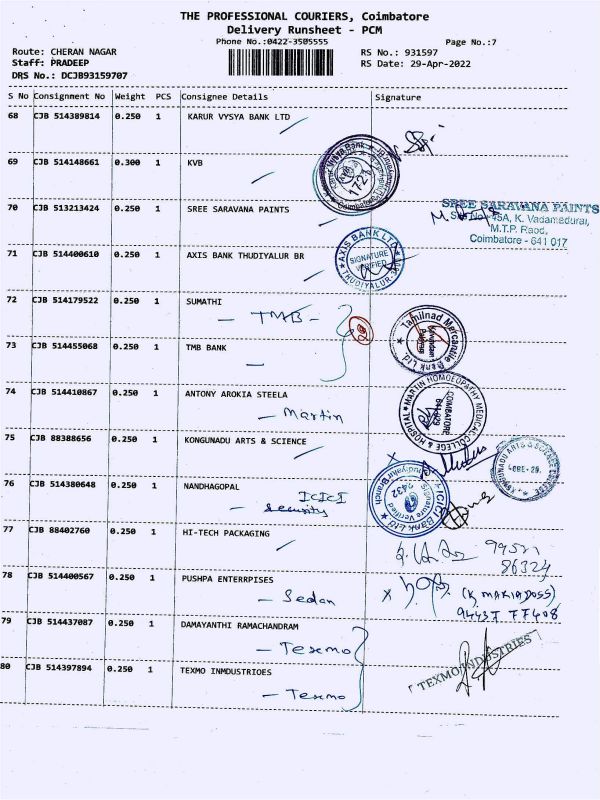 THE PROFESSIONAL COURIERS, Coimbatore
Delivery Runsheet - PCM
Phone No.:0422-3505555
Page No.:7
Route: CHERAN NAGAR
RS No.: 931597
Staff: PRADEEP
RS Date: 29-Apr-2022
DRS No.: DCJB93159707
S No Consignment No Weight PCS Consignee Details Signature
68 CJB 514389814 0.250 1 KARUR VYSYA BANK LTD
69 CJB 514148661 0.300 1 KVB
Vysya Bank
172
Coimbatore
70 CJB 513213424 0.250 1 SREE SARAVANA PAINTS
SREE SARAVANA PAINTS
45A, K. Vadamadurai,
M.T.P. Raod,
Coimbatore - 641 017
71 CJB 514400610 0.250 1 AXIS BANK THUDIYALUR BR
AXIS BANK LTD
SIGNATURE
VERIFIED
THUDIYALUR
72 CJB 514179522 0.250 1 SUMATHI
- TMB -
73 CJB 514455068 0.250 1 TMB BANK
Tamilnad Mercantile Bank Ltd
74 CJB 514410867 0.250 1 ANTONY AROKIA STEELA
- Martin
MARTIN HOMOEOPATHY MEDICAL COLLEGE & HOSPITAL
COIMBATORE
641 029
75 CJB 88388656 0.250 1 KONGUNADU ARTS & SCIENCE
KONGUNADU ARTS & SCIENCE COLLEGE
76 CJB 514380648 0.250 1 NANDHAGOPAL
ICICI
- security
ICICI Bank Ltd
Signature Verified
2432
Branch
77 CJB 88402760 0.250 1 HI-TECH PACKAGING
86324
78 CJB 514400567 0.250 1 PUSHPA ENTERRPISES
- Sedan
(K MARIADOSS)
94437 77408
79 CJB 514437087 0.250 1 DAMAYANTHI RAMACHANDRAM
- Texmo
80 CJB 514397894 0.250 1 TEXMO INMDUSTRIOES
- Texmo
TEXMO INDUSTRIES